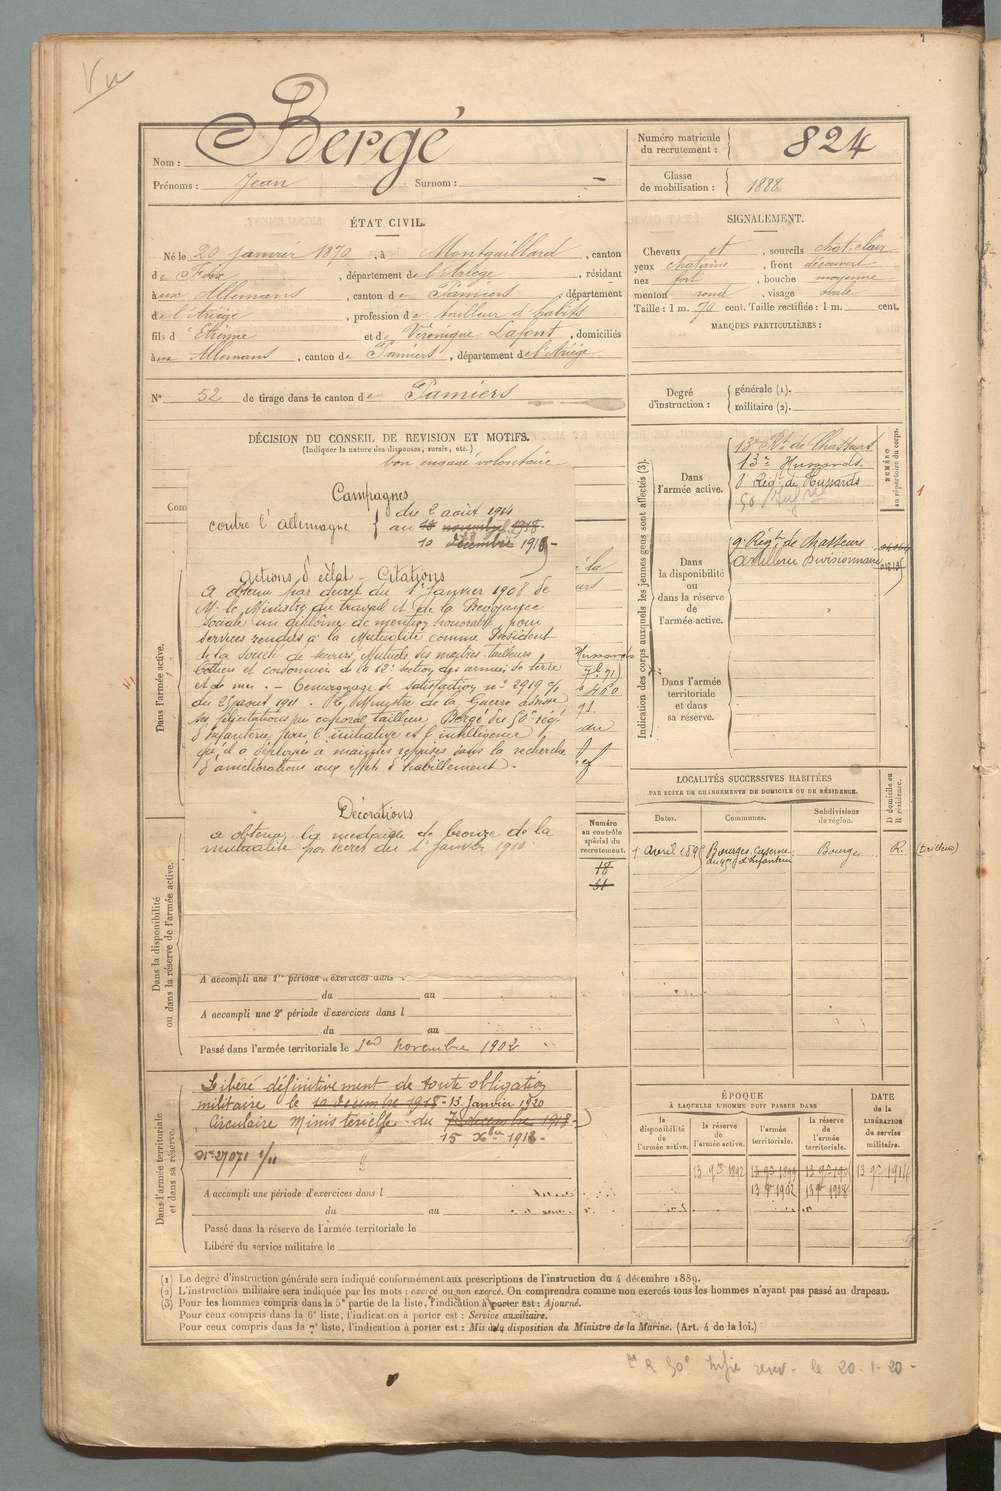 Vu
Nom : Bergé
Prénoms : Jean Surnom : –
Numéro matricule du recrutement : 824
Classe de mobilisation : 1888
ÉTAT CIVIL.
Né le 20 janvier 1870, à Montgaillard, canton
de Foix, département de l'Ariège, résidant
à aux Allemans, canton de Pamiers, département
de l'Ariège, profession de tailleur d'habits
fils d' Etienne et de Véronique Lafont, domiciliés
à aux Allemans, canton de Pamiers, département de l'Ariège
N° 52 de tirage dans le canton de Pamiers
SIGNALEMENT.
Cheveux et, sourcils chat. clair
yeux chatains, front découvert
nez fort, bouche moyenne
menton rond, visage ovale
Taille : 1 m. 70 cent. Taille rectifiée : 1 m. cent.
MARQUES PARTICULIÈRES :
Degré d'instruction : générale (1).
militaire (2).
DÉCISION DU CONSEIL DE REVISION ET MOTIFS.
(Indiquer la nature des dispenses, sursis, etc.)
bon engagé volontaire
Com
Campagnes
contre l'Allemagne du 2 août 1914
au novembre 1918
10 décembre 1918
Actions d'éclat – Citations
A obtenu par décret du 1er Janvier 1908 de
M. le Ministre du travail et de la Prévoyance
sociale un diplôme de mention honorable pour
services rendus à la Mutualité comme Président
de la Société de secours Mutuels des maîtres-tailleurs
bottiers et cordonnier de la 12e section des armées de terre
et de mer. – Témoignage de satisfaction n° 2919 c/1
du 25 août 1911. M. le Ministre de la Guerre adresse
ses félicitations au caporal tailleur Bergé du 50e rég.
d'infanterie pour l'initiative et l'intelligence
qu'il a déployées à maintes reprises dans la recherche
d'améliorations aux effets d'habillement.
Décorations
a obtenu la médaille de bronze de la
mutualité par décret du 1er janvier 1910.
Dans l'armée active.
la
Hussards
au
Numéro au contrôle spécial du recrutement.
18
31
Dans la disponibilité ou dans la réserve de l'armée active.
A accompli une 1re période d'exercices dans
du au
A accompli une 2e période d'exercices dans l
du au
Passé dans l'armée territoriale le 1er novembre 1902
Dans l'armée territoriale et dans sa réserve.
Libéré définitivement de toute obligation
militaire le 10 décembre 1918 - 13 Janvier 1920
Circulaire Ministérielle du 7 décembre 1918
15 Xbre 1918 -
N° 27071 1/11
A accompli une période d'exercices dans l
du au
Passé dans la réserve de l'armée territoriale le
Libéré du service militaire le
Indication des corps auxquels les jeunes gens sont affectés (3).
NUMÉRO au répertoire du corps.
Dans l'armée active.
13e Rt de Chasseurs
13e Hussards
8e Régt de Hussards
50
1
Dans la disponibilité ou dans la réserve de l'armée active.
9e Régt de Chasseurs
Artillerie Divisionnaire
Dans l'armée territoriale et dans sa réserve.
LOCALITÉS SUCCESSIVES HABITÉES
PAR SUITE DE CHANGEMENTS DE DOMICILE OU DE RÉSIDENCE.
Dates. Communes. Subdivisions de région. D domicile ou R résidence.
1er avril 189 Bourges, Caserne Bourges R. (tailleur)
d'infanterie
ÉPOQUE À LAQUELLE L'HOMME DOIT PASSER DANS
la disponibilité de l'armée active. la réserve de l'armée active. l'armée territoriale. la réserve de l'armée territoriale. DATE de la LIBÉRATION du service militaire.
13 9bre 1892 13 9bre 1899 13 9bre 13 9bre 1914
13 9bre 1902 13 9bre 1918
(1) Le degré d'instruction générale sera indiqué conformément aux prescriptions de l'instruction du 4 décembre 1889.
(2) L'instruction militaire sera indiquée par les mots : exercé ou non exercé. On comprendra comme non exercés tous les hommes n'ayant pas passé au drapeau.
(3) Pour les hommes compris dans la 5e partie de la liste, l'indication à porter est : Ajourné.
Pour ceux compris dans la 6e liste, l'indication à porter est : Service auxiliaire.
Pour ceux compris dans la 7e liste, l'indication à porter est : Mis à la disposition du Ministre de la Marine. (Art. 4 de la loi.)
R 50e Infie le 20-1-20-